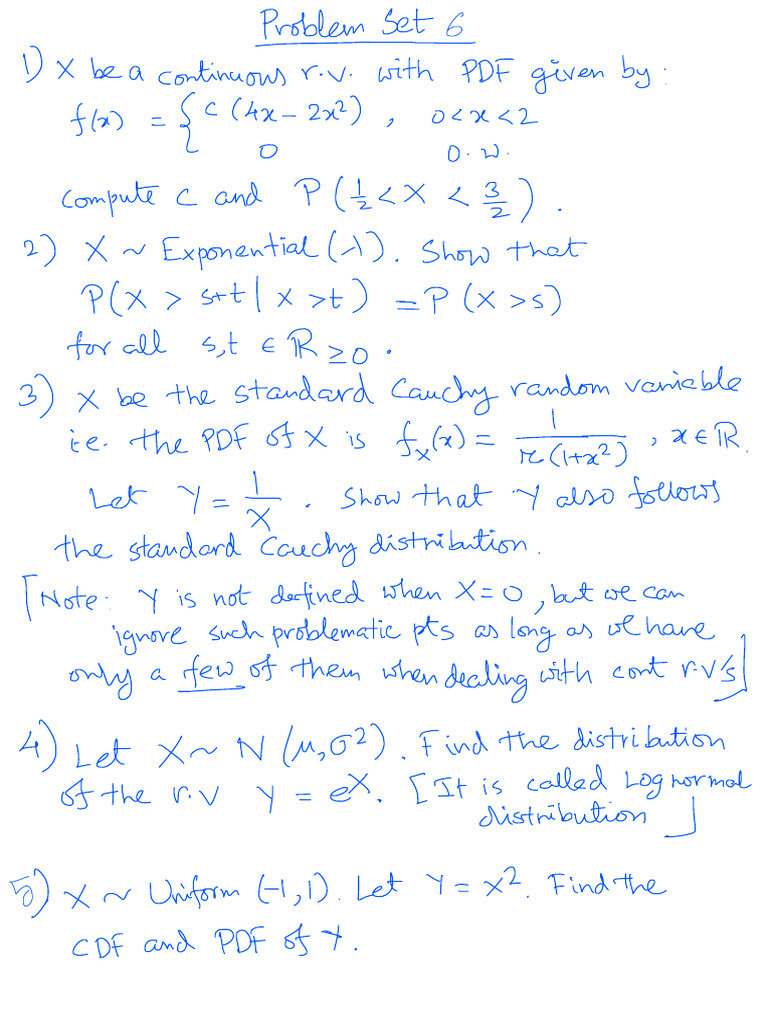 Problem Set 6
1) X be a continuous r.v. with PDF given by:
f(x) = { c (4x - 2x²) , 0 < x < 2
0 O.W.
compute c and P (1/2 < X < 3/2) .
2) X ~ Exponential (λ). Show that
P(X > s+t | X > t) = P (X > s)
for all s,t ∈ ℝ≥0 .
3) X be the standard Cauchy random variable
i.e. the PDF of X is f_X(x) = 1/(π(1+x²)) , x ∈ ℝ.
Let Y = 1/X . Show that Y also follows
the standard Cauchy distribution.
[Note: Y is not defined when X = 0, but we can
ignore such problematic pts as long as we have
only a few of them when dealing with cont r.v's]
4) Let X ~ N (μ, σ²) . Find the distribution
of the r.v Y = e^X. [It is called Log normal
distribution]
5) X ~ Uniform (-1,1). Let Y = X². Find the
CDF and PDF of Y.